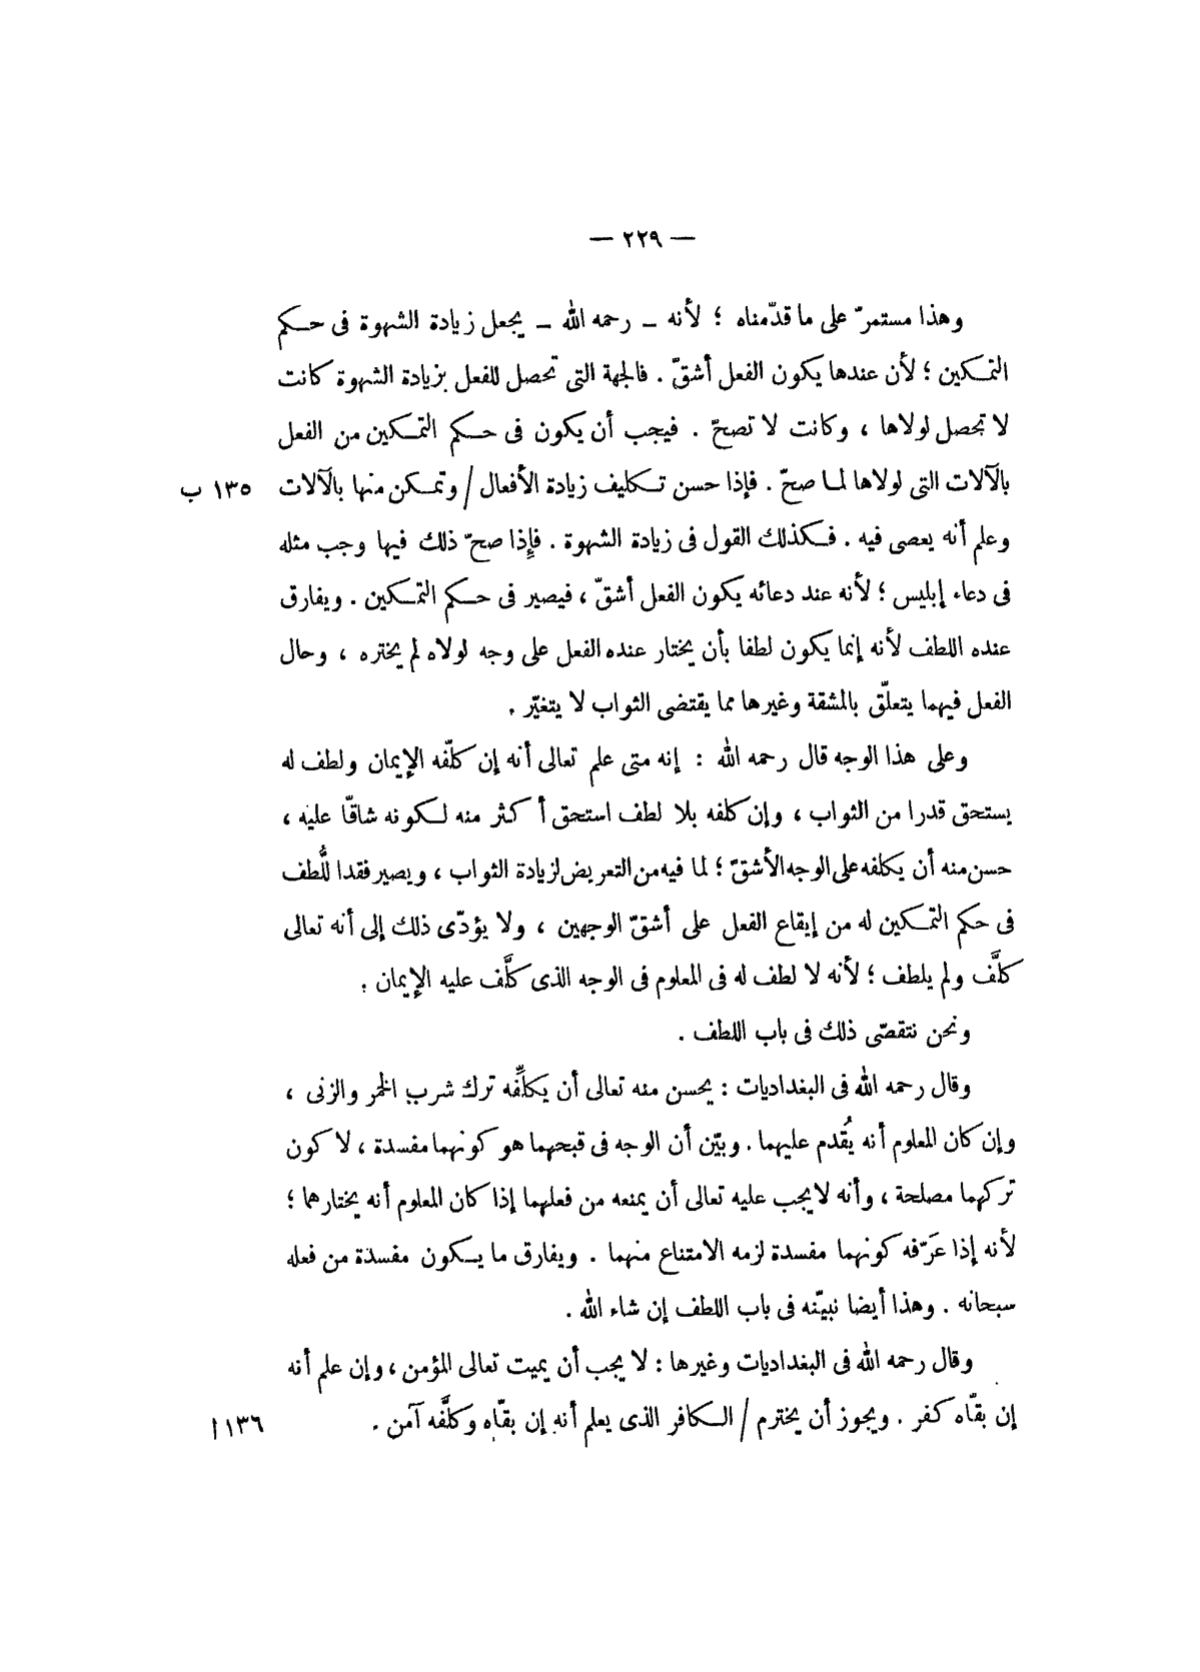 — ٢٢٩ —
وهذا مستمرّ على ما قدّمناه ؛ لأنه – رحمه الله – يجعل زيادة الشهوة فى حكم
التمكين ؛ لأن عندها يكون الفعل أشقّ . فالجهة التى تحصل للفعل بزيادة الشهوة كانت
لا تحصل لولاها ، وكانت لا تصحّ . فيجب أن يكون فى حكم التمكين من الفعل
بالآلات التى لولاها لما صحّ . فإذا حسن تكليف زيادة الأفعال / وتمكن منها بالآلات ١٣٥ ب
وعلم أنه يعصى فيه . فكذلك القول فى زيادة الشهوة . فإذا صحّ ذلك فيها وجب مثله
فى دعاء إبليس ؛ لأنه عند دعائه يكون الفعل أشقّ ، فيصير فى حكم التمكين . ويفارق
عنده اللطف لأنه إنما يكون لطفا بأن يختار عنده الفعل على وجه لولاه لم يختره ، وحال
الفعل فيهما يتعلّق بالمشقة وغيرها مما يقتضى الثواب لا يتغيّر .
وعلى هذا الوجه قال رحمه الله : إنه متى علم تعالى أنه إن كلّفه الإيمان ولطف له
يستحق قدرا من الثواب ، وإن كلفه بلا لطف استحق أكثر منه لكونه شاقّا عليه ،
حسن منه أن يكلفه على الوجه الأشقّ ؛ لما فيه من التعريض لزيادة الثواب ، ويصير فقدا للُّطف
فى حكم التمكين له من إيقاع الفعل على أشقّ الوجهين ، ولا يؤدّى ذلك إلى أنه تعالى
كلَّف ولم يلطف ؛ لأنه لا لطف له فى المعلوم فى الوجه الذى كلَّف عليه الإيمان .
ونحن نتقصّى ذلك فى باب اللطف .
وقال رحمه الله فى البغداديات : يحسن منه تعالى أن يكلِّفه ترك شرب الخمر والزنى ،
وإن كان المعلوم أنه يُقدم عليهما . وبيّن أن الوجه فى قبحهما هو كونهما مفسدة ، لا كون
تركهما مصلحة ، وأنه لا يجب عليه تعالى أن يمنعه من فعلهما إذا كان المعلوم أنه يختارهما ؛
لأنه إذا عَرّفه كونهما مفسدة لزمه الامتناع منهما . ويفارق ما يكون مفسدة من فعله
سبحانه . وهذا أيضا نبيّنه فى باب اللطف إن شاء الله .
وقال رحمه الله فى البغداديات وغيرها : لا يجب أن يميت تعالى المؤمن ، وإن علم أنه
إن بقّاه كفر . ويجوز أن يخترم / الكافر الذى يعلم أنه إن بقّاه وكلَّفه آمن . ١٣٦ ا